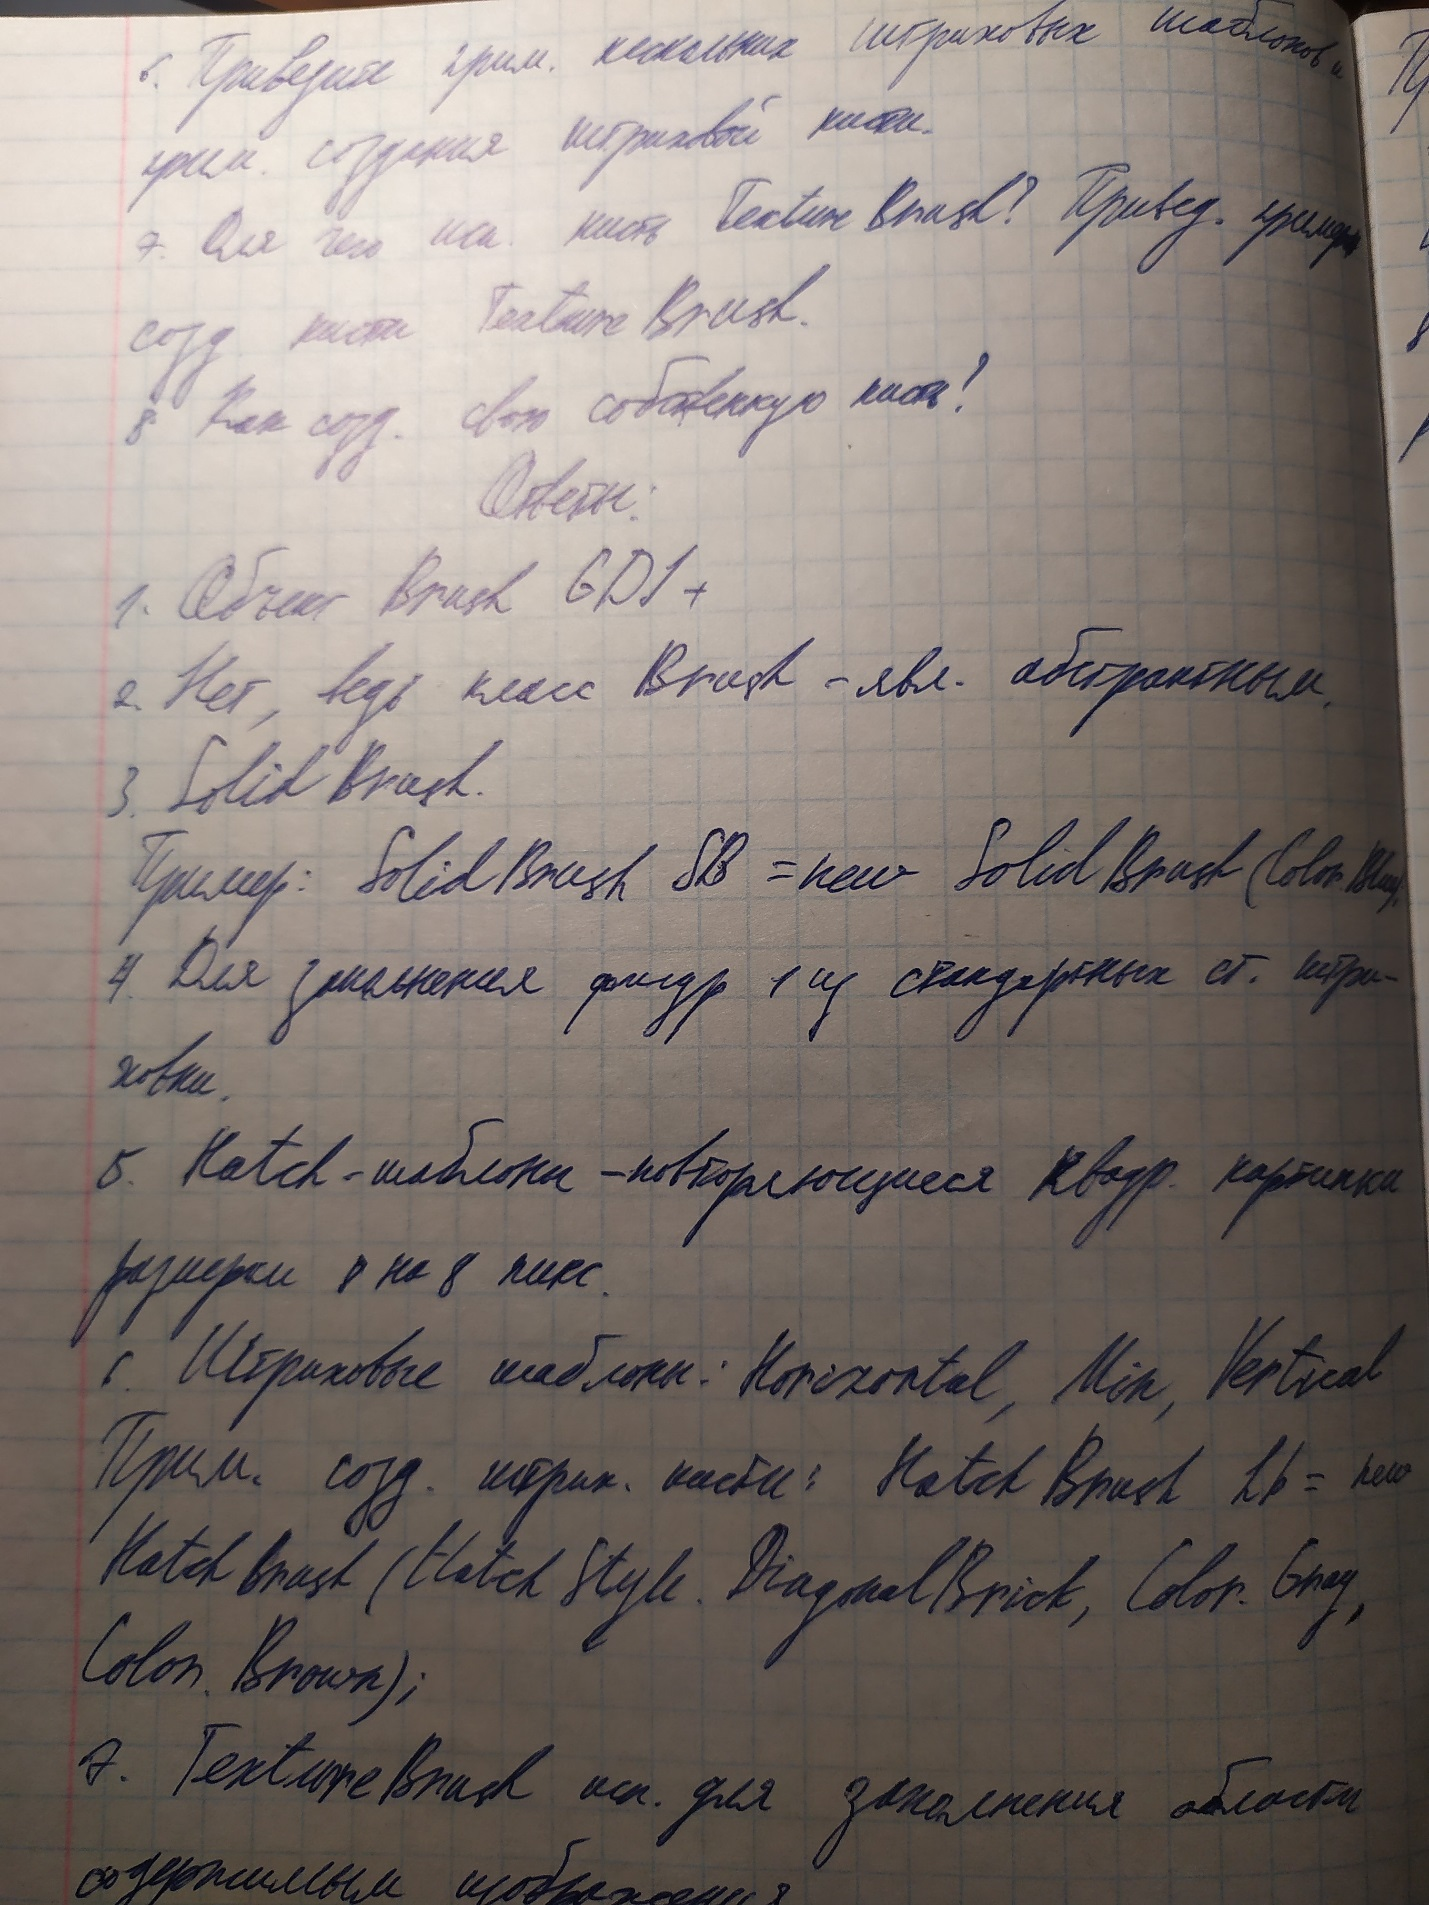 6. Приведите прим. нескольких штриховых шаблонов и
прим. создания штриховой кисти.
7. Для чего исп. кисть TextureBrush? Привед. пример
созд. кисти TextureBrush.
8. Как созд. свою собственную кисть?
Ответы:
1. Объект Brush GDI+
2. Нет, ведь класс Brush - явл. абстрактным.
3. SolidBrush.
Пример: SolidBrush SB = new SolidBrush (Color.Blue);
4. Для заполнения фигур 1 из стандартных ст. штри-
ховки.
5. Hatch-шаблоны - повторяющиеся квадр. картинки
размером 8 на 8 пикс.
6. Штриховые шаблоны: Horizontal, Min, Vertical
Прим. созд. штрих. кисти: HatchBrush hb = new
HatchBrush (HatchStyle.DiagonalBrick, Color.Gray,
Color.Brown);
7. TextureBrush исп. для заполнения области
содержимым изображения